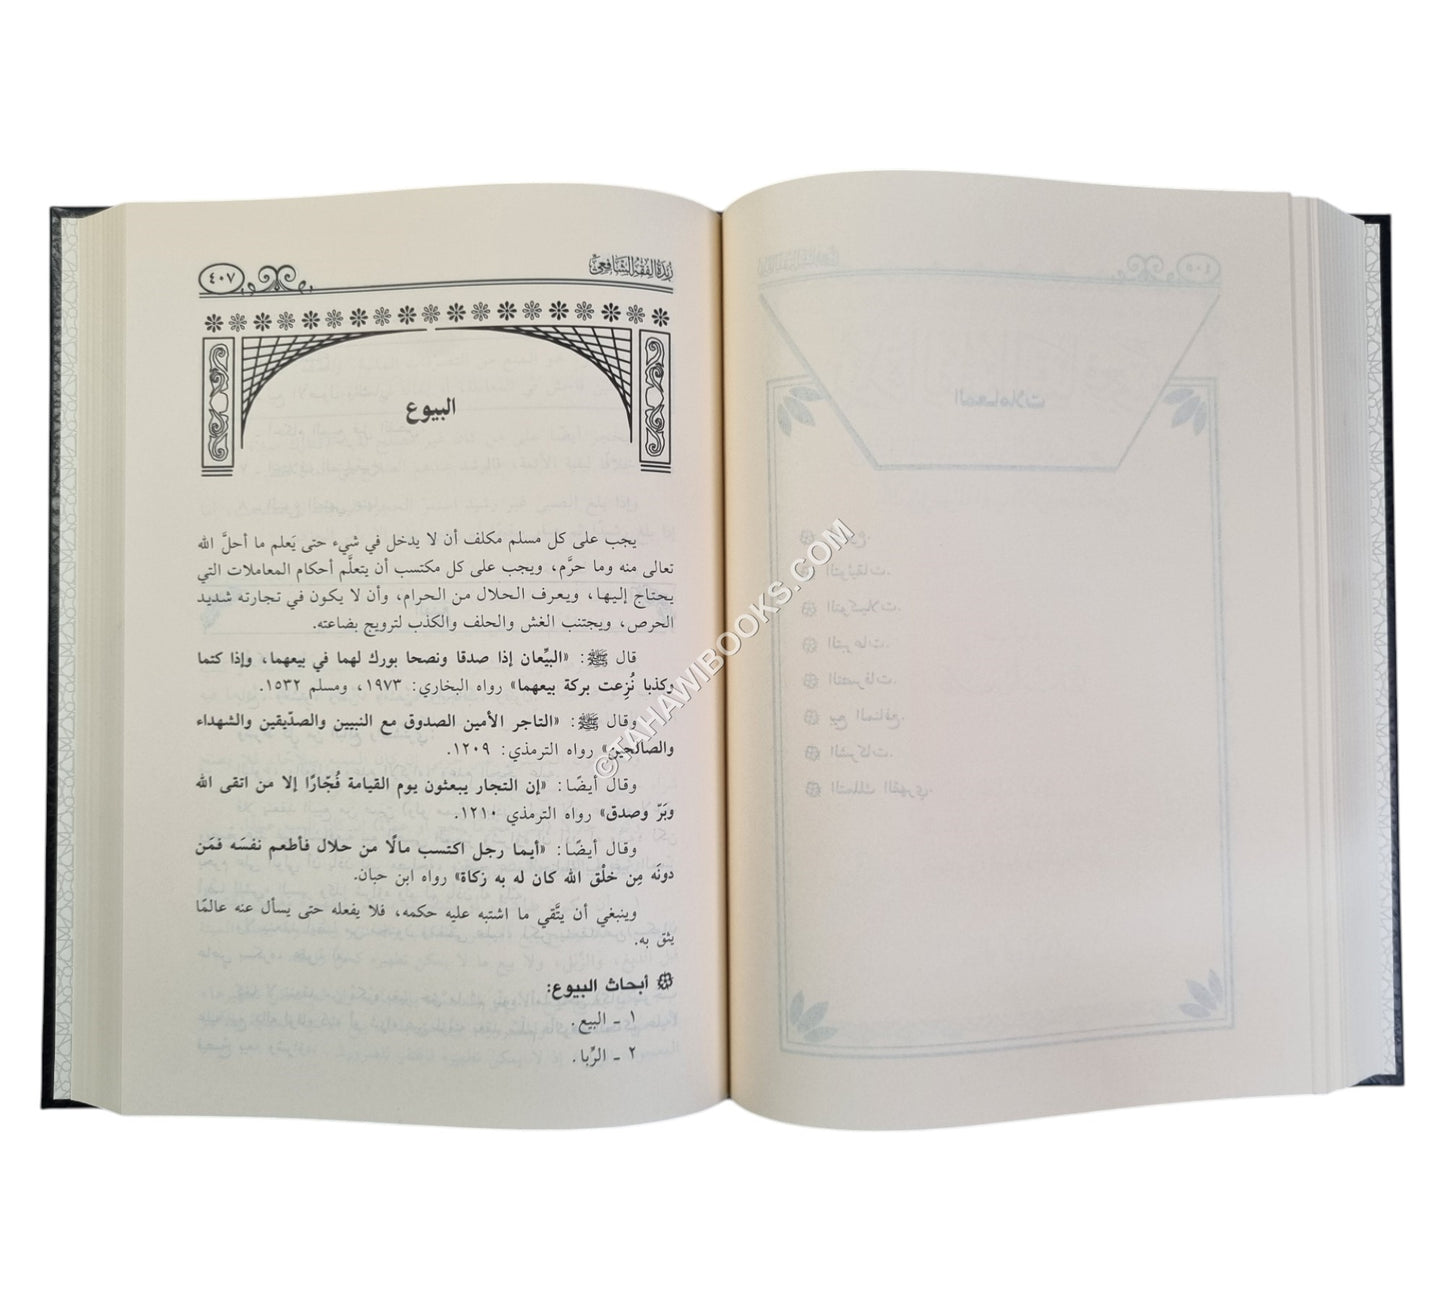 زبدة الفقه الشافعي
٤٠٧
البيوع
يجب على كل مسلم مكلف أن لا يدخل في شيء حتى يَعلم ما أحلَّ الله
تعالى منه وما حرَّم، ويجب على كل مكتسب أن يتعلَّم أحكام المعاملات التي
يحتاج إليها، ويعرف الحلال من الحرام، وأن لا يكون في تجارته شديد
الحرص، ويجتنب الغش والحلف والكذب لترويج بضاعته.
قال ﷺ: «البيِّعان إذا صدقا ونصحا بورك لهما في بيعهما، وإذا كتما
وكذبا نُزِعت بركة بيعهما» رواه البخاري: ١٩٧٣، ومسلم ١٥٣٢.
وقال ﷺ: «التاجر الأمين الصدوق مع النبيين والصدّيقين والشهداء
والصالحين» رواه الترمذي: ١٢٠٩.
وقال أيضًا: «إن التجار يبعثون يوم القيامة فُجّارًا إلا من اتقى الله
وبَرّ وصدق» رواه الترمذي ١٢١٠.
وقال أيضًا: «أيما رجل اكتسب مالًا من حلال فأطعم نفسَه فمَن
دونَه مِن خلْق الله كان له به زكاة» رواه ابن حبان.
وينبغي أن يتَّقي ما اشتبه عليه حكمه، فلا يفعله حتى يسأل عنه عالمًا
يثق به.
أبحاث البيوع:
١ - البيع.
٢ - الرِّبا.
©TAHAWIBOOKS.COM
المعاملات
التوثيقات.
التوكيلات.
التبرعات.
التصرفات.
بيع المنافع.
الشركات.
التملك القهري.